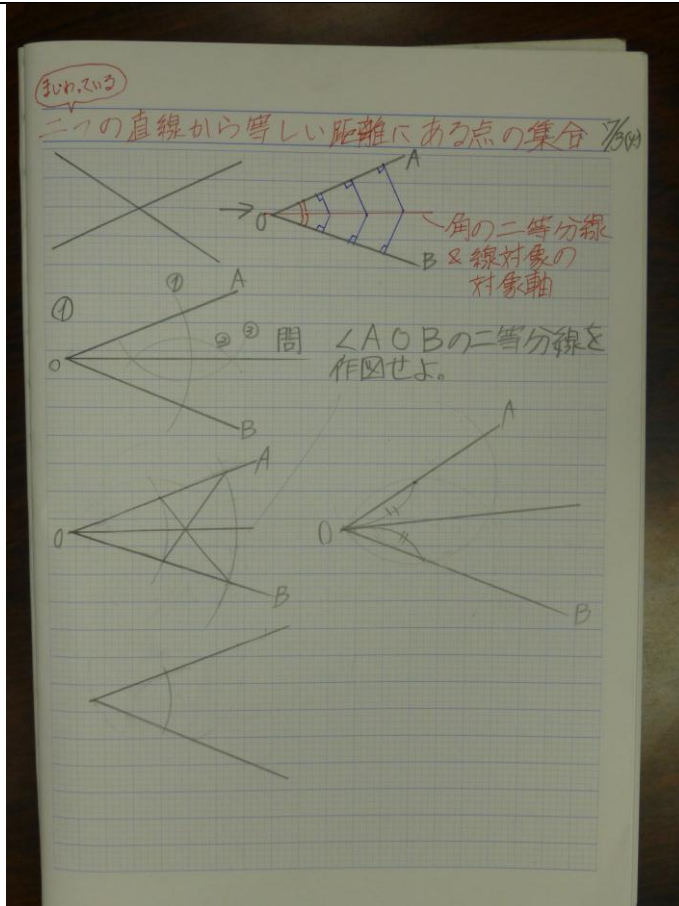 まじわっている
二つの直線から等しい距離にある点の集合 7/3(火)
A
O
B
角の二等分線
&線対象の
対象軸
①
①
②
③
A
O
B
問 ∠AOBの二等分線を
作図せよ。
A
O
B
A
O
B